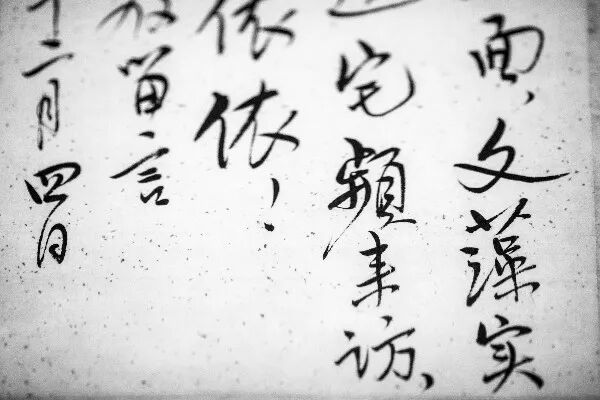 面，文藻实
宅频来访，
依依！
留言
十二月四日